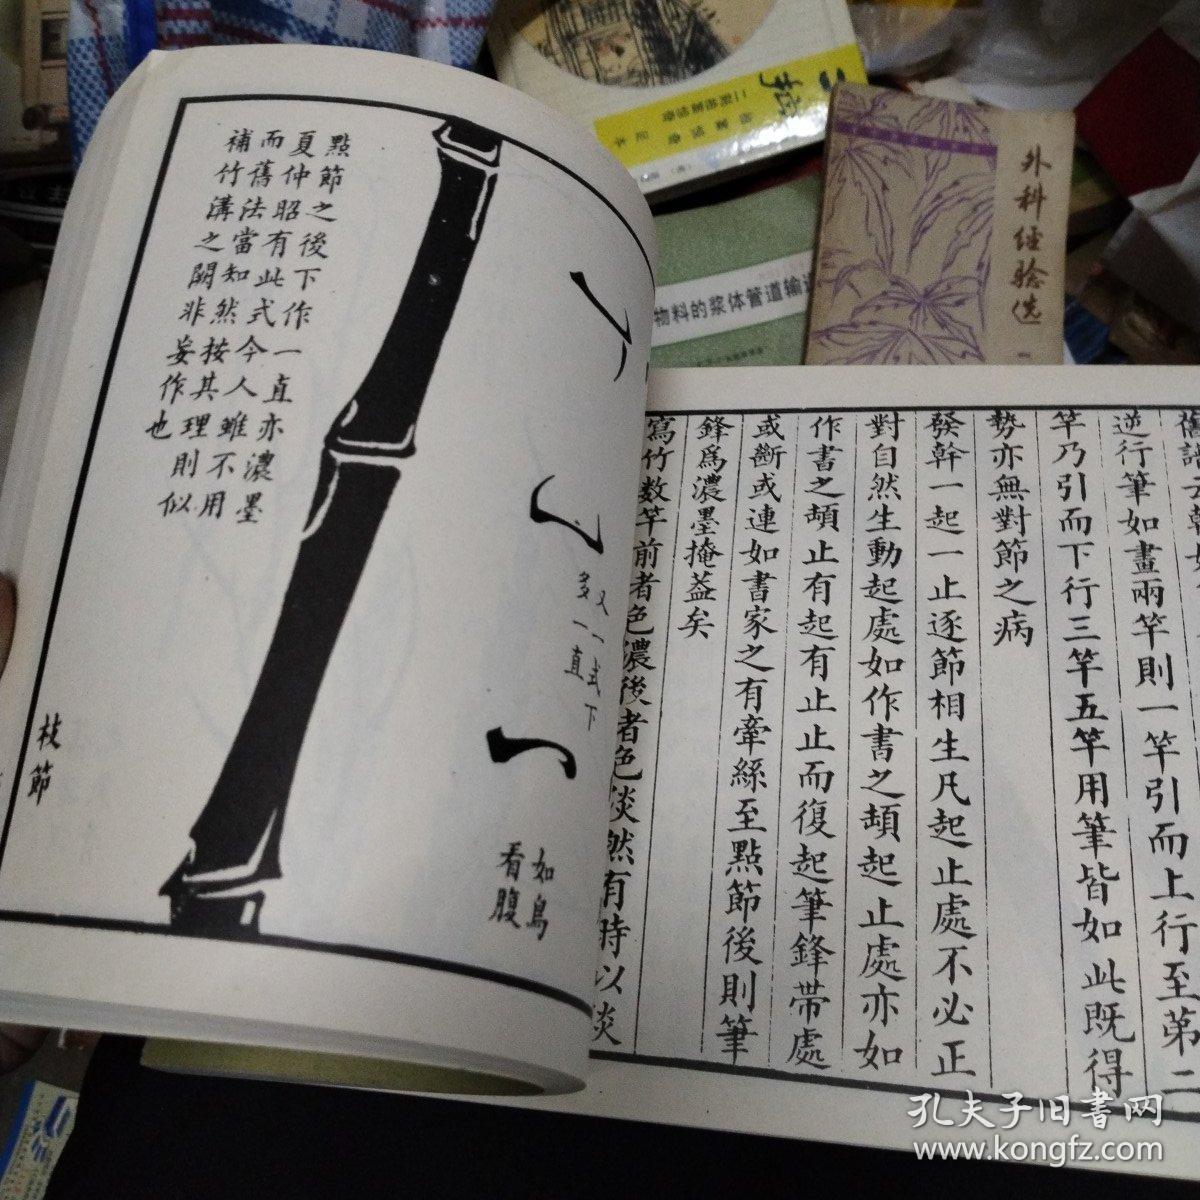 點節之後下作一直亦濃墨
夏仲昭有此式今人雖不用
而舊法當知然按其理則似
補竹溝之闕非妄作也
又一式下
多一直
如鳥
看腹
枝節
逆行筆如畫兩竿則一竿引而上行至第二
竿乃引而下行三竿五竿用筆皆如此既得
勢亦無對節之病
發幹一起一止逐節相生凡起止處不必正
對自然生動起處如作書之頓起止處亦如
作書之頓止有起有止止而復起筆鋒帶處
或斷或連如書家之有牽絲至點節後則筆
鋒爲濃墨掩蓋矣
寫竹数竿前者色濃後者色淡然有時以淡
外科经验选
物料的浆体管道输送
孔夫子旧书网
www.kongfz.com